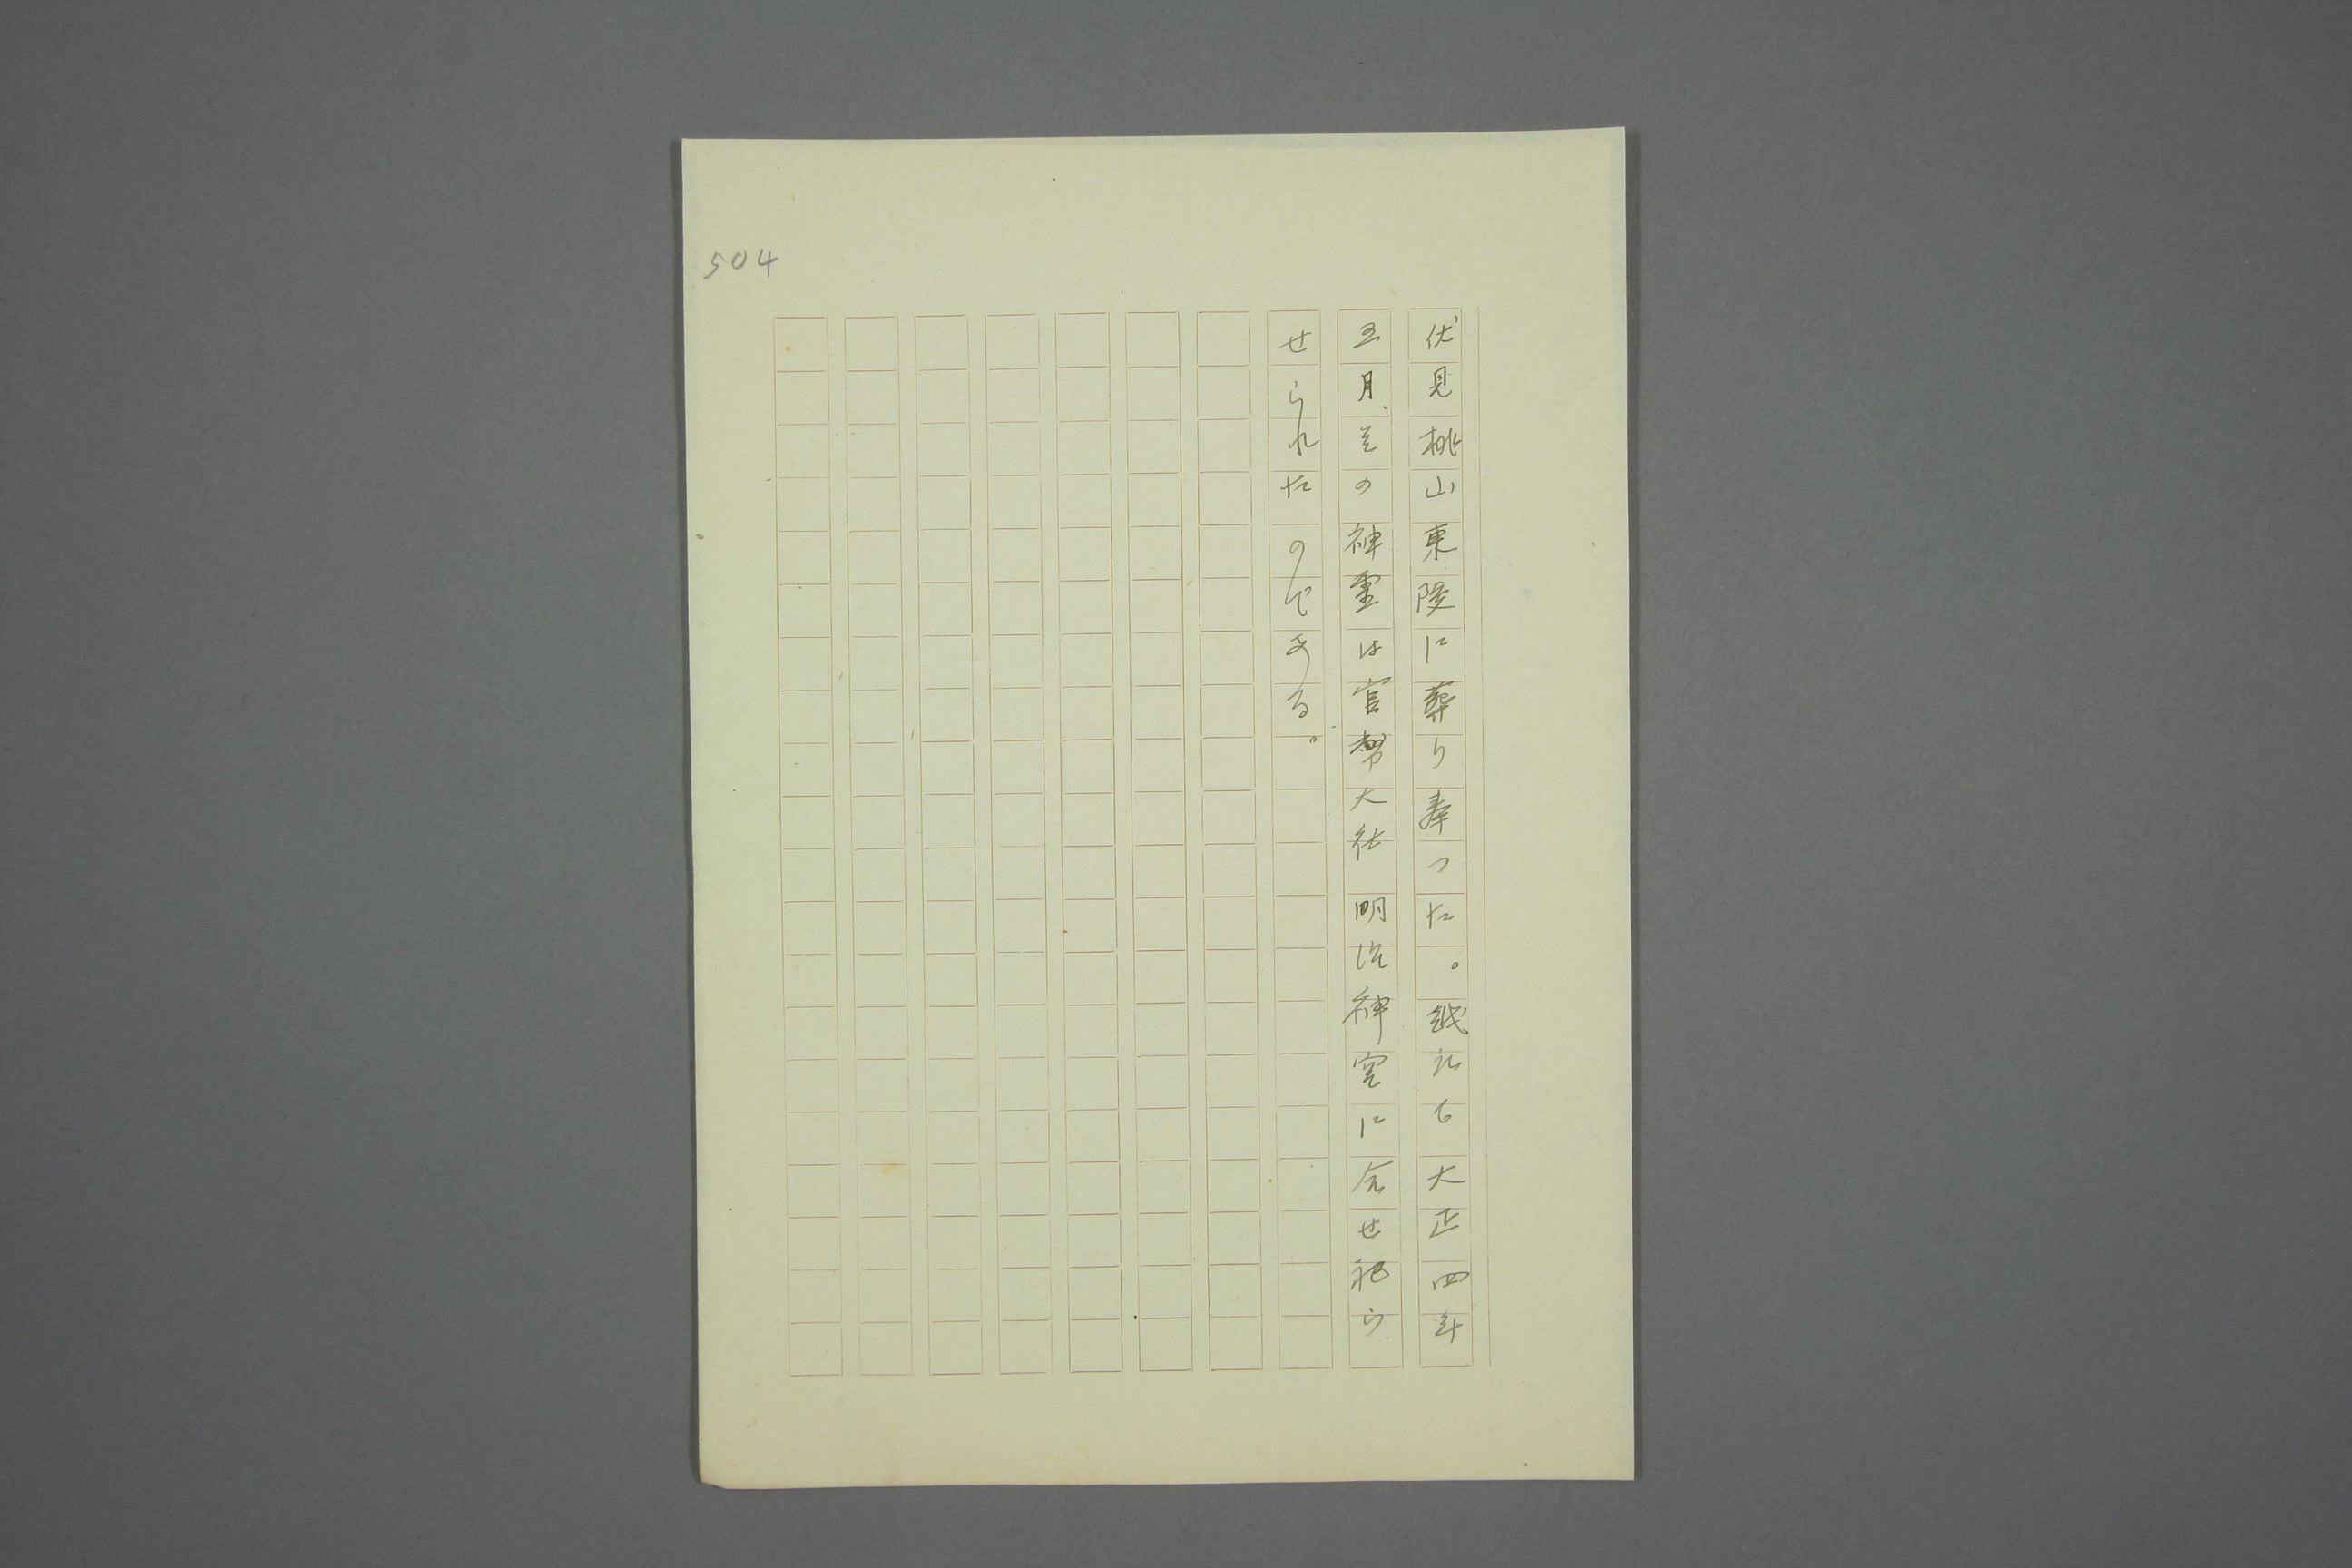 504
伏見桃山東陵に葬り奉つた。越えて大正四年
五月、その神霊は官幣大社明治神宮に合せ祀ら
せられたのである。